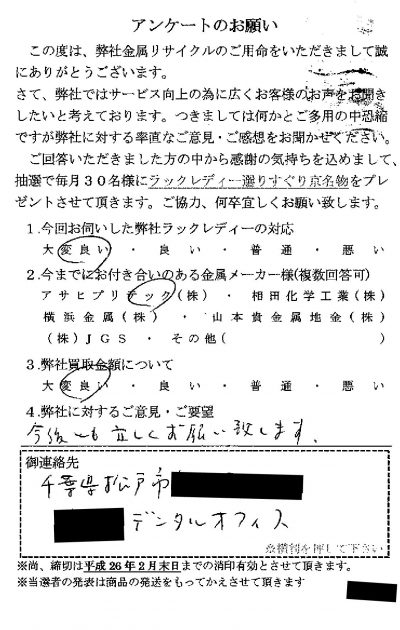 アンケートのお願い
この度は、弊社金属リサイクルのご用命をいただきまして誠
にありがとうございます。
さて、弊社ではサービス向上の為に広くお客様のお声をお聞き
したいと考えております。つきましては何かとご多用の中恐縮
ですが弊社に対する率直なご意見・ご感想をお聞かせください。
ご回答いただきました方の中から感謝の気持ちを込めまして、
抽選で毎月30名様にラックレディー選りすぐり京名物をプレ
ゼントさせて頂きます。ご協力、何卒宜しくお願い致します。
1.今回お伺いした弊社ラックレディーの対応
大変良い ・ 良い ・ 普通 ・ 悪い
2.今までにお付き合いのある金属メーカー様(複数回答可)
アサヒプリテック(株) ・ 相田化学工業(株)
横浜金属(株) ・ 山本貴金属地金(株)
(株)JGS ・ その他( )
3.弊社買取金額について
大変良い ・ 良い ・ 普通 ・ 悪い
4.弊社に対するご意見・ご要望
今後とも宜しくお願い致します。
御連絡先
千葉県松戸市
デンタルオフィス
※横得を押して下さい
※尚、締切は平成26年2月末日までの消印有効とさせて頂きます。
※当選者の発表は商品の発送をもってかえさせて頂きます